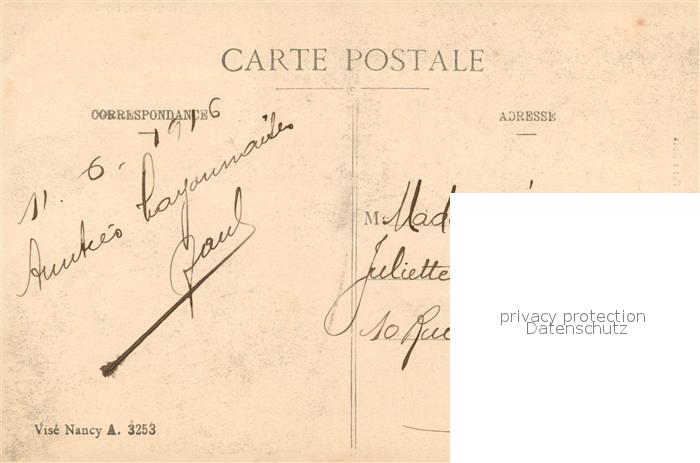 CARTE POSTALE
CORRESPONDANCE
ADRESSE
11. 6. 1916
Amitiés bayonnaises
Paul
M. Mad
Juliette
10 Rue
privacy protection
Datenschutz
Visé Nancy A. 3253